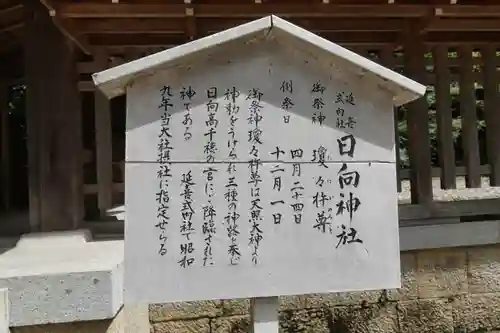 延喜
式内社
日向神社
御祭神 瓊々杵尊
例祭日 四月二十四日
十二月一日
御祭神瓊々杵尊は天照大神より
神勅をうけられ三種の神器を奉じ
日向高千穂の宮に降臨された
神である 延喜式内社で昭和
九年当大社摂社に指定せらる